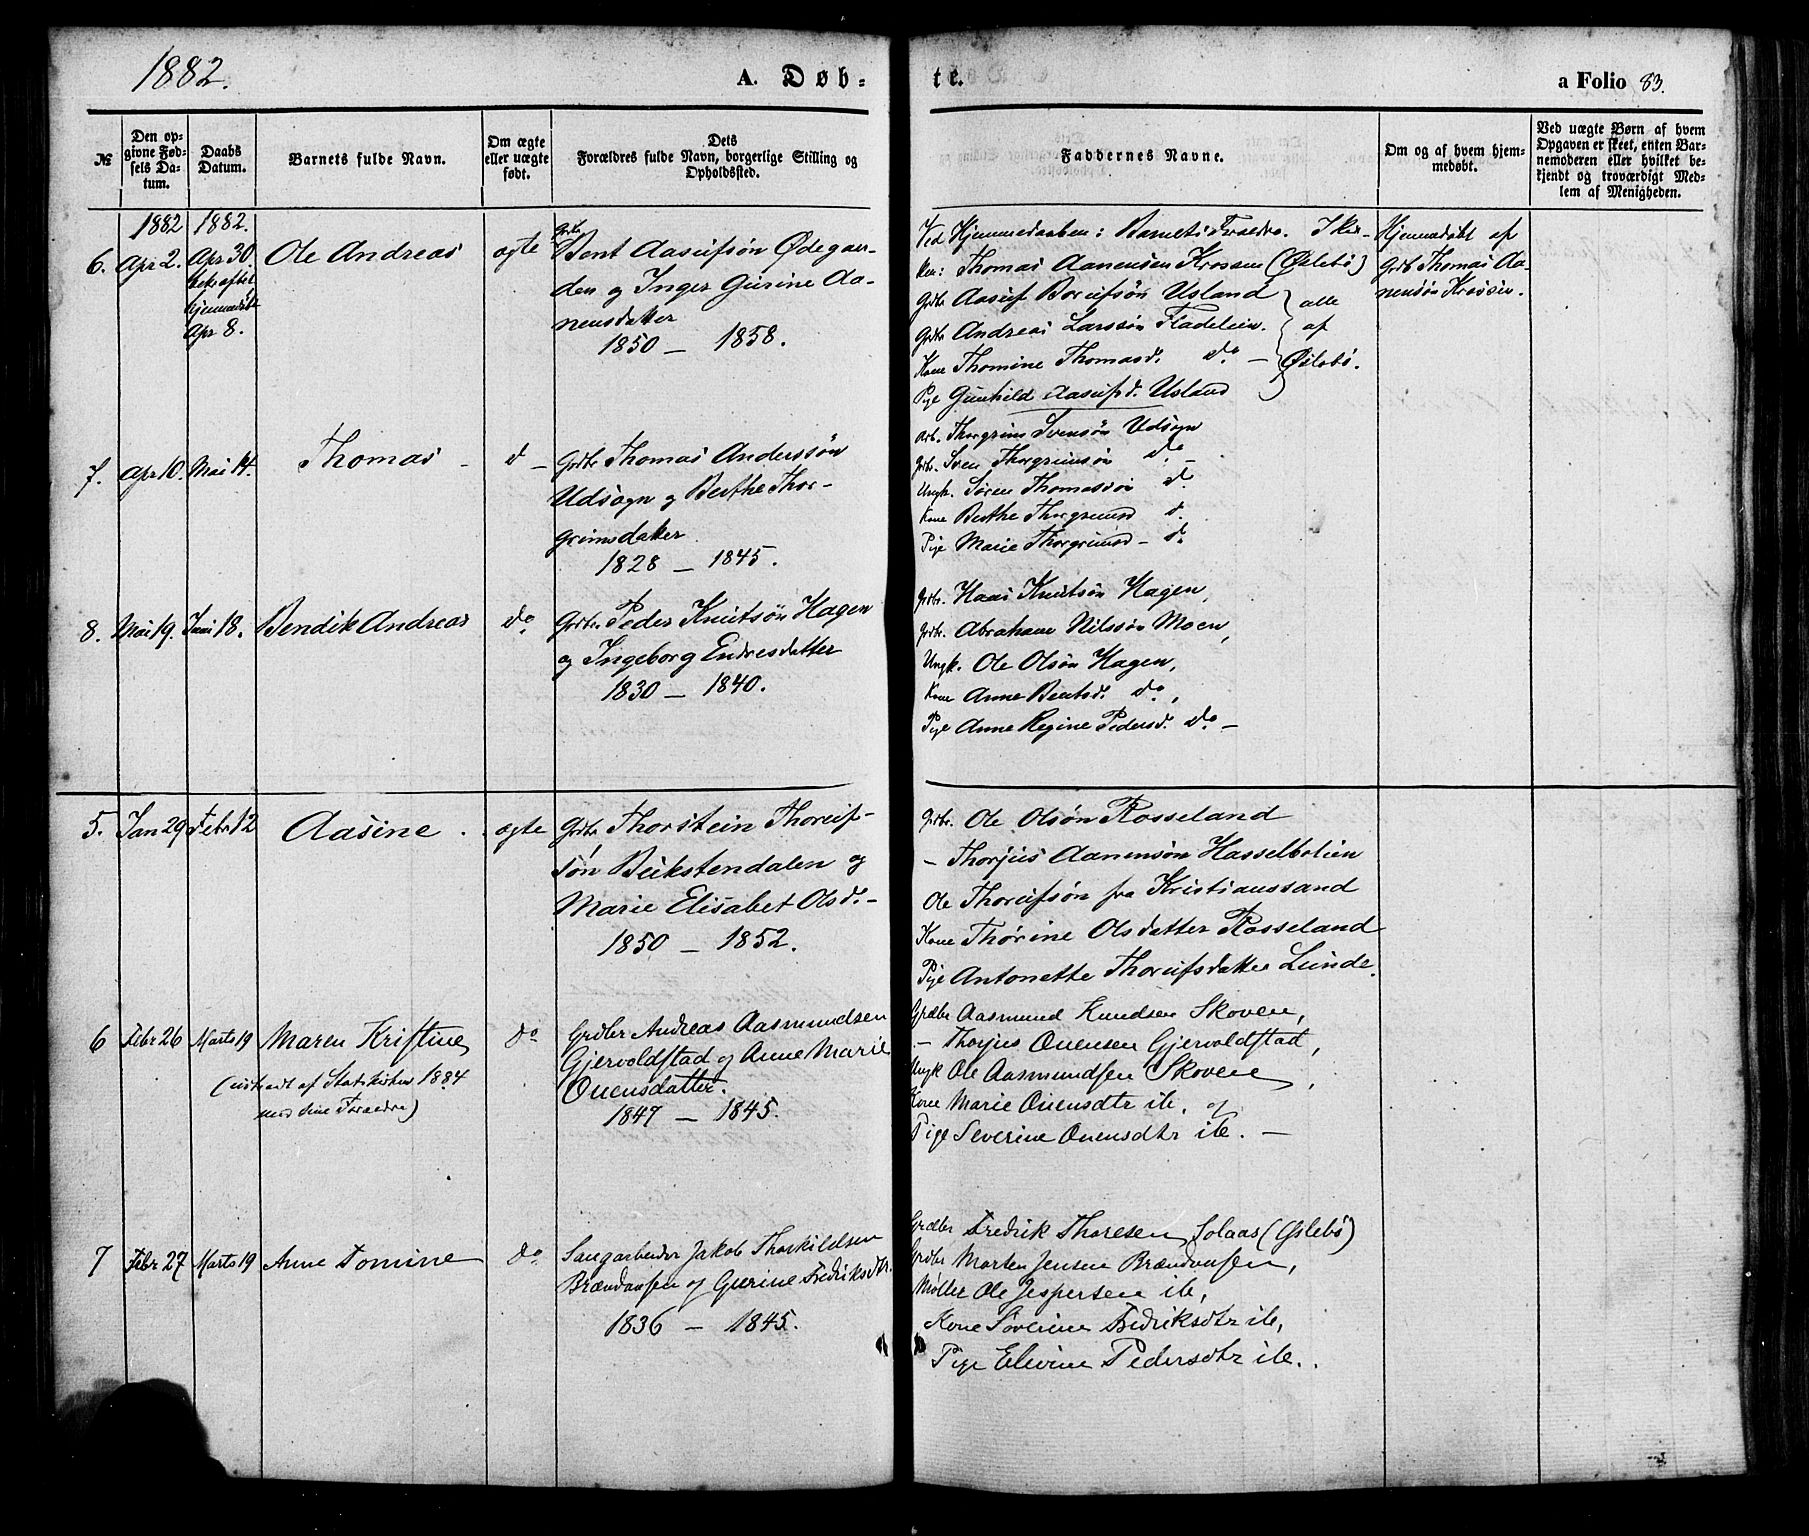 1882.
A. Døb-
te.
a Folio 83.
№
Den op-
givne Fød-
sels Da-
tum.
Daabs
Datum.
Barnets fulde Navn.
Om ægte
eller uægte
født.
Dets
Forældres fulde Navn, borgerlige Stilling og
Opholdssted.
Faddernes Navne.
Om og af hvem hjem-
medøbt.
Ved uægte Børn af hvem
Opgaven er skeet, enten Bar-
nemoderen eller hvilket be-
kjendt og troværdigt Med-
lem af Menigheden.
1882 1882.
6. Apr 2. Apr 30
hjemmedøbt
Apr 8.
Ole Andreas
ægte
Grdbr.
Bent Aasulfsøn Ødegaar-
den og Inger Gurine Aa-
nensdatter
1850 — 1858.
Ved Hjemmedaaben: Barnets Forældre. I Kir-
ken: Thomas Aanensen Krossen (Øslebø)
Grdbr Aasulf Borufsøn Usland
Grdbr Andreas Larssøn Fladeleien.
Kone Thomine Thomasd. do —
Pige Gunhild Aasulfsd. Usland
alle
af
Øslebø.
Hjemmedøbt af
Grdb Thomas Aa-
nensøn Krossen.
7. Apr 10. Mai 14.
Thomas
d —
Grdbr Thomas Anderssøn
Udsogn og Berthe Thor-
grimsdatter
1828 — 1845.
Arb. Thorgrim Svensøn Udsogn
Grdbr. Sven Thorgrimsøn do —
Ungk. Søren Thomassøn d.
Kone Berthe Thorgrimsd d.
Pige Marie Thorgrimsd — d.
8. Mai 19. Juni 18.
Bendik Andreas
do
Grdbr. Peder Knutsøn Hagen
og Ingeborg Endresdatter
1830 — 1840.
Grdbr. Haas Knutsøn Hagen,
Grdbr. Abraham Nilssøn Moen,
Ungk. Ole Olsøn Hagen,
Kone Anne Bentsd. do,
Pige Anne Regine Pedersd. do —
5. Jan 29 Febr 12
Aasine.
ægte
Grdbr Thorstein Thorulf-
søn Birkstendalen og
Marie Elisabet Olsd. —
1850 — 1852.
Grdbr. Ole Olsøn Rosseland
— Thorjus Aanensøn Hasselbolien
Ole Thorulfsøn fra Kristianssand
Kone Thorine Olsdatter Rosseland
Pige Antonette Thorulfsdatter Lunde.
6 Febr 26 Marts 19
Maren Kristine
(udtraadt af Statskirken 1884
med sine Forældre)
do
Grdbr Andreas Aasmundsen
Gjervoldstad og Anne Marie
Ouensdatter.
1847 — 1845.
Grdbr Aasmund Knudsen Skoven,
— Thorjus Ouensen Gjervoldstad,
Ungk Ole Aasmundsen Skoven,
Kone Marie Ouensdtr ib. og
Pige Severine Ouensdtr ib. —
7 Febr 27 Marts 19
Anne Tomine
do
Saugarbeider Jakob Thorkildsen
Brændaasen og Gurine Fredriksdtr.
1836 — 1845.
Grdbr Fredrik Thoresen Solaas (Øslebø)
Grdbr Morten Jensen Brændaasen,
Møller Ole Jespersen ib,
Kone Severine Fredriksdtr ib,
Pige Elevine Pedersdtr ib.